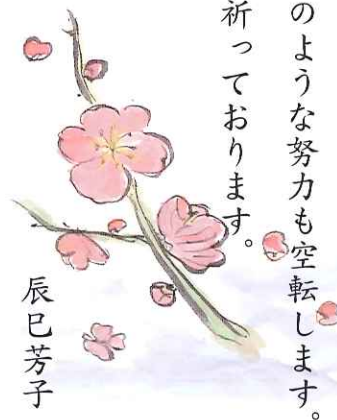 のような努力も空転します。
祈っております。
辰巳芳子